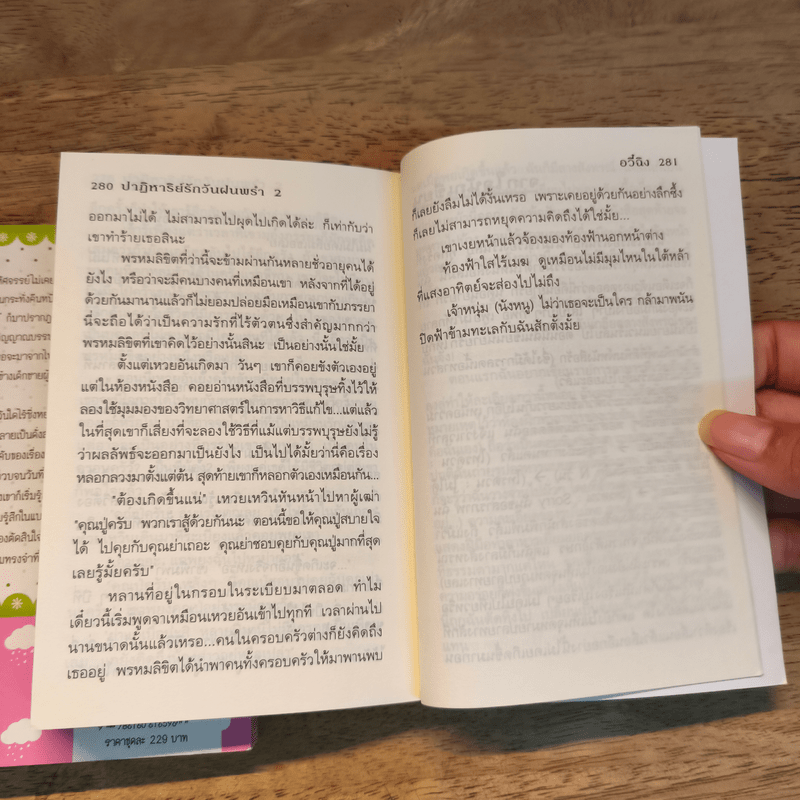 280 ปาฏิหาริย์รักวันฝนพรำ 2
ออกมาไม่ได้ ไม่สามารถไปผุดไปเกิดได้ล่ะ ก็เท่ากับว่า
เขาทำร้ายเธอสินะ
พรหมลิขิตที่ว่านี้จะข้ามผ่านกันหลายชั่วอายุคนได้
ยังไง หรือว่าจะมีคนบางคนที่เหมือนเขา หลังจากที่ได้อยู่
ด้วยกันมานานแล้วก็ไม่ยอมปล่อยมือเหมือนเขากับภรรยา
นี่จะถือได้ว่าเป็นความรักที่ไร้ตัวตนซึ่งสำคัญมากกว่า
พรหมลิขิตที่เขาคิดไว้อย่างนั้นสินะ เป็นอย่างนั้นใช่มั้ย
ตั้งแต่เหวยอันเกิดมา วันๆ เขาก็คอยขังตัวเองอยู่
แต่ในห้องหนังสือ คอยอ่านหนังสือที่บรรพบุรุษทิ้งไว้ให้
ลองใช้มุมมองของวิทยาศาสตร์ในการหาวิธีแก้ไข...แต่แล้ว
ในที่สุดเขาก็เสี่ยงที่จะลองใช้วิธีที่แม้แต่บรรพบุรุษยังไม่รู้
ว่าผลลัพธ์จะออกมาเป็นยังไง เป็นไปได้มั้ยว่านี่คือเรื่อง
หลอกลวงมาตั้งแต่ต้น สุดท้ายเขาก็หลอกตัวเองเหมือนกัน...
"ต้องเกิดขึ้นแน่" เหวยเหวินหันหน้าไปหาผู้เฒ่า
"คุณปู่ครับ พวกเราสู้ด้วยกันนะ ตอนนี้ขอให้คุณปู่สบายใจ
ได้ ไปคุยกับคุณย่าเถอะ คุณย่าชอบคุยกับคุณปู่มากที่สุด
เลยรู้มั้ยครับ"
หลานที่อยู่ในกรอบในระเบียบมาตลอด ทำไม
เดี๋ยวนี้เริ่มพูดจาเหมือนเหวยอันเข้าไปทุกที เวลาผ่านไป
นานขนาดนั้นแล้วเหรอ...คนในครอบครัวต่างก็ยังคิดถึง
เธออยู่ พรหมลิขิตได้นำพาคนทั้งครอบครัวให้มาพานพบ
อวี๋ฉิง 281
ก็เลยยังลืมไม่ได้งั้นเหรอ เพราะเคยอยู่ด้วยกันอย่างลึกซึ้ง
ก็เลยไม่สามารถหยุดความคิดถึงได้ใช่มั้ย...
เขาเงยหน้าแล้วจ้องมองท้องฟ้านอกหน้าต่าง
ท้องฟ้าใสไร้เมฆ ดูเหมือนไม่มีมุมไหนในใต้หล้า
ที่แสงอาทิตย์จะส่องไปไม่ถึง
เจ้าหนุ่ม (นังหนู) ไม่ว่าเธอจะเป็นใคร กล้ามาพนัน
ปิดฟ้าข้ามทะเลกับฉันสักตั้งมั้ย
ราคาชุดละ 229 บาท